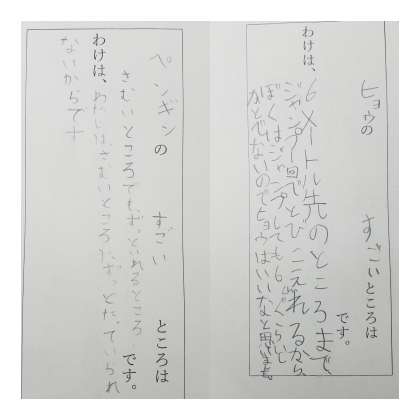 ペンギンの すごい ところは
さむいところでも、ずっといれるところ です。
わけは、わたしは、さむいところに、ずっとたっていられ
ないからです
ヒョウの すごいところは
です。
6メートル先のところまで、
ジャンプ1回でとびこえれるから、
ぼくはジャンプしても6
かとどかないのでヒョウはいいなと思いました。
わけは、